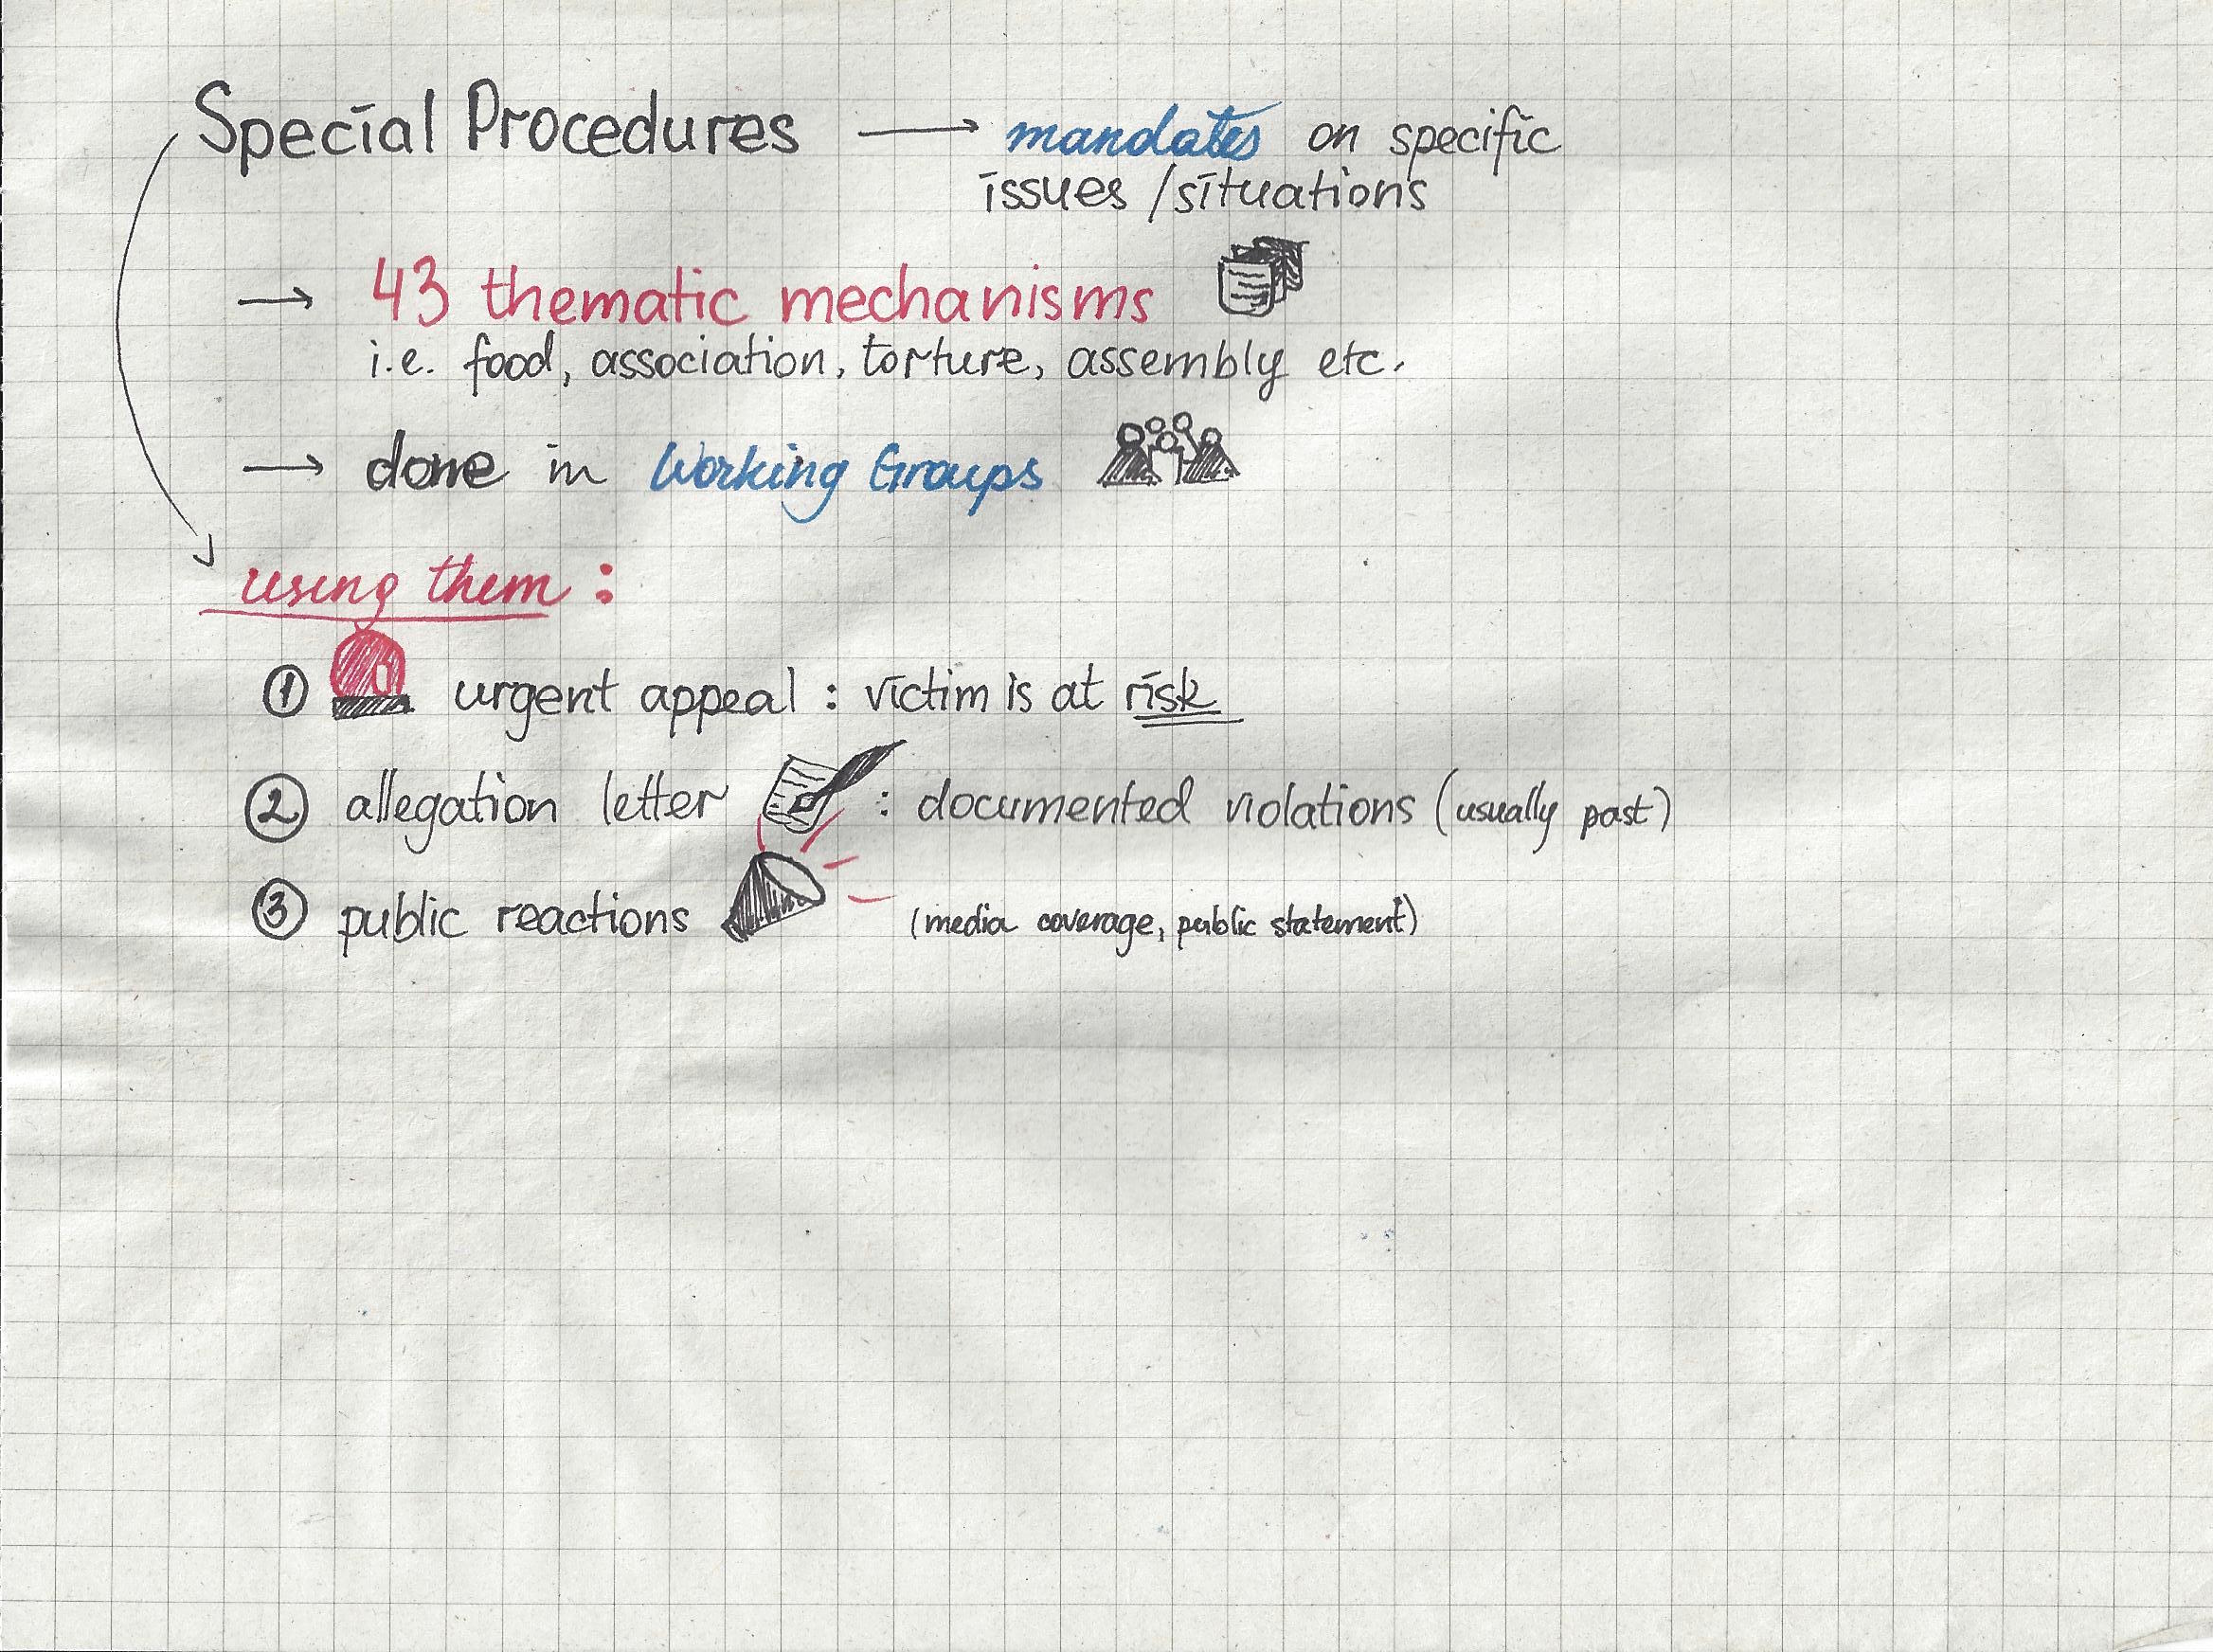 Special Procedures → mandates on specific
issues / situations
→ 43 thematic mechanisms
i.e. food, association, torture, assembly etc.
→ done in Working Groups
using them :
① urgent appeal : victim is at risk
② allegation letter : documented violations (usually past)
③ public reactions (media coverage, public statement)